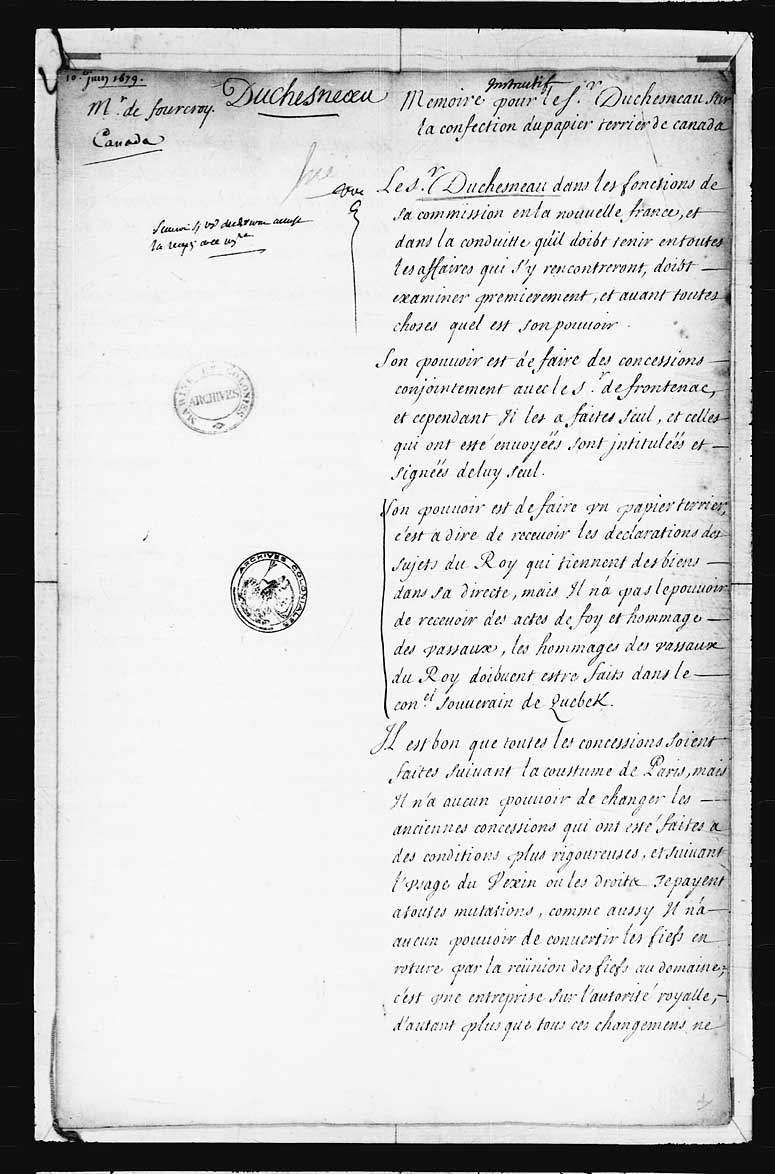 10. Juin 1679.
Mr. de fourcroy.
Duchesneau
Canada
Memoire Instructif pour le Sr. Duchesneau sur
la confection du papier terrier de canada
vue
MARINE ET COLONIES
ARCHIVES
ARCHIVES COLONIALES
Le Sr. Duchesneau dans les fonctions de
sa commission en la nouvelle france, et
dans la conduitte qu'il doibt tenir en toutes
les affaires qui s'y rencontreront, doibt
examiner premierement, et auant toutes
choses quel est son pouuoir.
Son pouuoir est de faire des concessions
conjointement auec le Sr. de frontenac,
et cependant Il les a faites seul, et celles
qui ont esté enuoyéës sont jntituléës et
signéës de luy seul.
Son pouuoir est de faire vn papier terrier,
c'est a dire de receuoir les declarations des
sujets du Roy qui tiennent des biens
dans sa directe, mais Il n'a pas le pouuoir
de receuoir des actes de foy et hommage
des vassaux, les hommages des vassaux
du Roy doibuent estre faits dans le
conel. souuerain de Quebek.
Il est bon que toutes les concessions soient
faites suiuant la coustume de Paris, mais
Il n'a aucun pouuoir de changer les
anciennes concessions qui ont esté faites a
des conditions plus rigoureuses, et suiuant
l'vsage du Vexin ou les droits se payent
a toutes mutations, comme aussy Il n'a
aucun pouuoir de conuertir les fiefs en
roture par la reünion des fiefs au domaine,
c'est vne entreprise sur l'autorité royalle,
d'autant plus que tous ces changemens ne